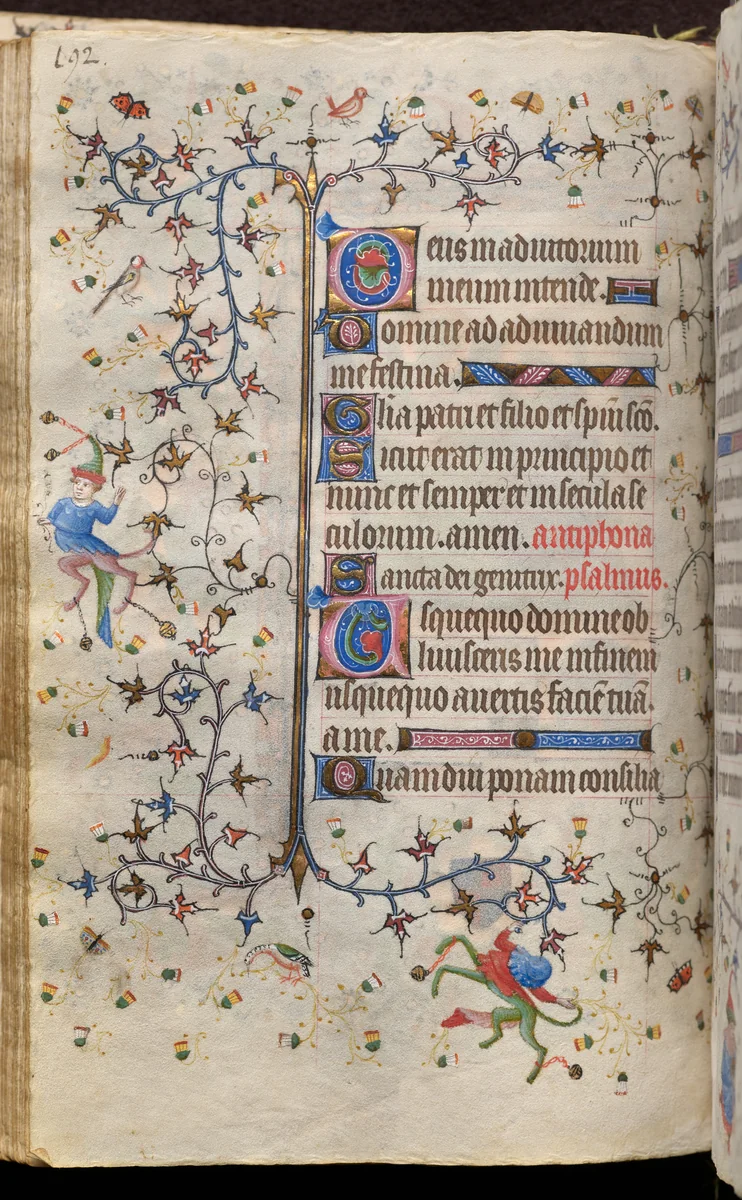 192.
Deus in adiutorium
meum intende.
Domine ad adiuuandum
me festina.
Gl̄ia patri et filio et spūi scō.
Sicut erat in principio et
nunc et semper et in secula se
culorum. amen. antiphona
Sancta dei genitrix. psalmus.
Usquequo domine ob
liuisceris me in finem
usquequo auertis faciē tuā.
a me.
Quam diu ponam consilia